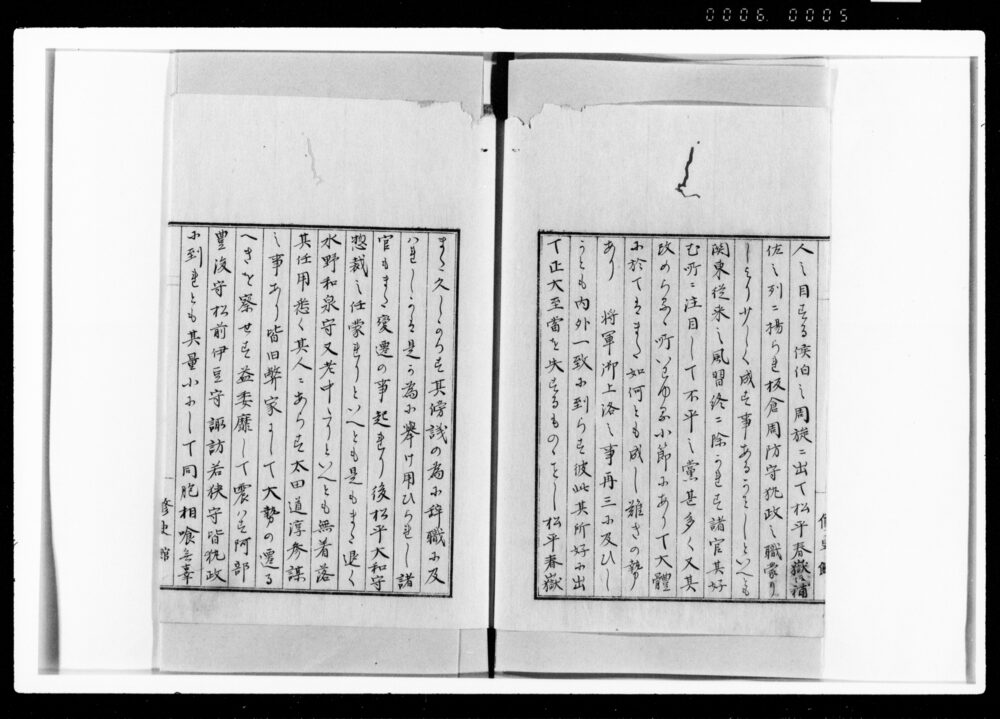 0006 0005
人之目する侯伯之周旋ニ出て松平春嶽ハ補
佐之列ニ揚られ板倉周防守執政之職蒙り
しより少しく成す事あるうことしといへとも
関東従来之風習終ニ除かれす諸官其好
む所ニ注目して不平之黨甚多く又其
改めらるゝ所いはゆる小節にありて大體
に於てはまた如何とも成し難きの勢
あり 将軍御上洛之事再三に及ひし
うとも内外一致に到らす彼此其所好に出
て正大至當を失するものゝことし松平春嶽
また久しからす其傍議の為に辞職に及
はれしかは是か為に挙け用ひられし諸
官もまた変遷の事起れり後松平大和守
惣裁之任蒙れりといへとも是もまた退く
水野和泉守又老中たりといへとも無着落
其任用悉く其人にあらす太田道淳参謀
之事あり皆旧弊家にして大勢の遷る
へきを察せす益委靡して震はす阿部
豊後守松前伊豆守諏訪若狭守皆執政
に到れとも其量小にして同胞相喰無辜
修史館